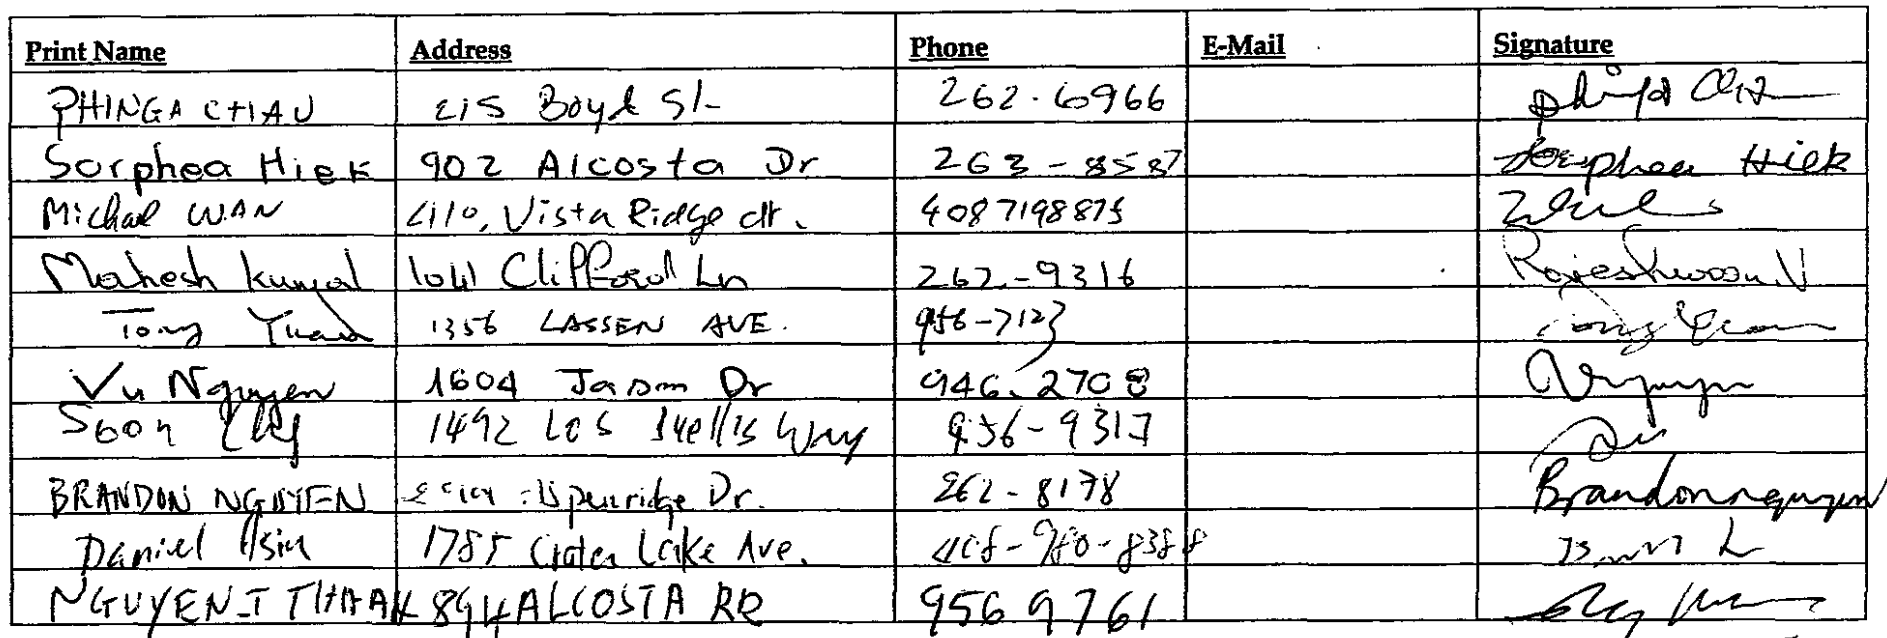 Print Name Address Phone E-Mail Signature
PHINGA CHAU 215 Boyd St 262.6966
Sorphea Hiek 902 Alcosta Dr 263-8587 Sorphea Hiek
Michael WAN 410, Vista Ridge dr. 4087198875
Mahesh Kunjal 1041 Clifford Ln 262-9316
Tony Yuan 1356 LASSEN AVE. 956-7123
Vu Nguyen 1604 Jason Dr 946.2708
Soon 1492 Los Way 956-9317
BRANDON NGUYEN Aspenridge Dr. 262-8178 Brandon nguyen
Daniel Hsin 1785 Crater Lake Ave. 408-980-8388
NGUYEN-I 894 ALCOSTA RD 956 9761